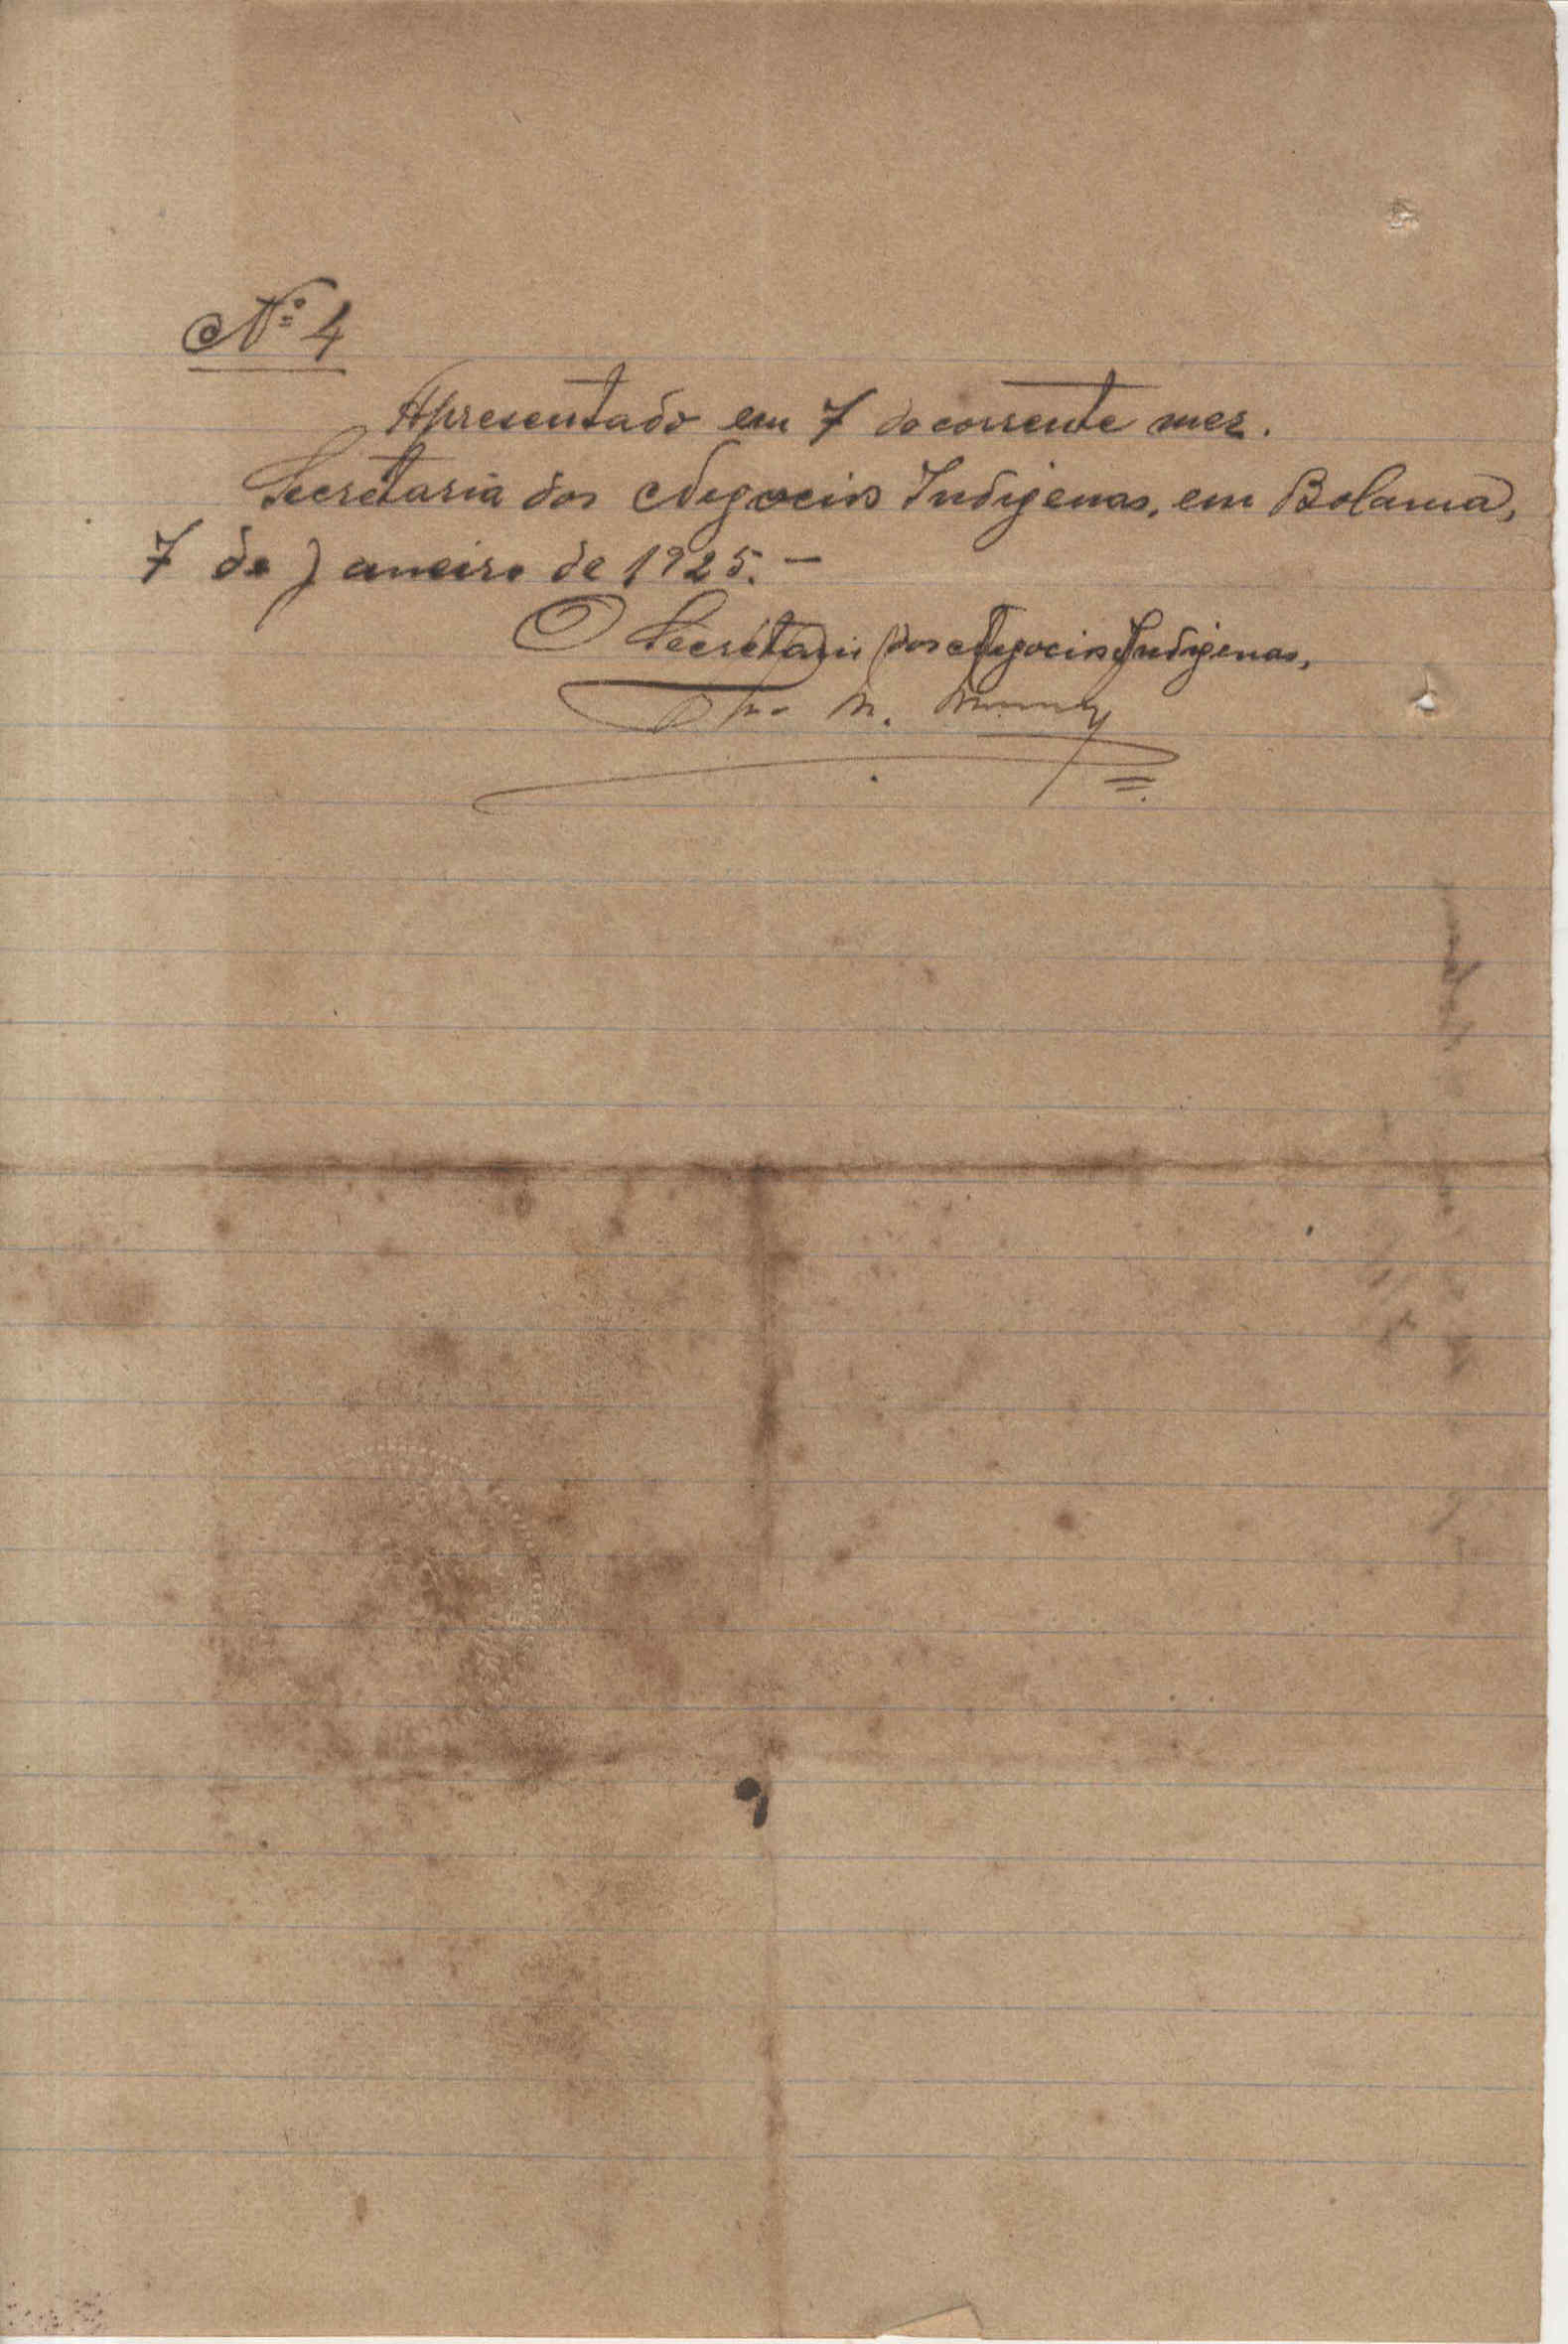 Nº 4
Apresentado em 7 do corrente mez.
Secretaria dos Negocios Indigenas, em Bolama,
7 de Janeiro de 1925. –
O Secretario dos Negocios Indigenas,